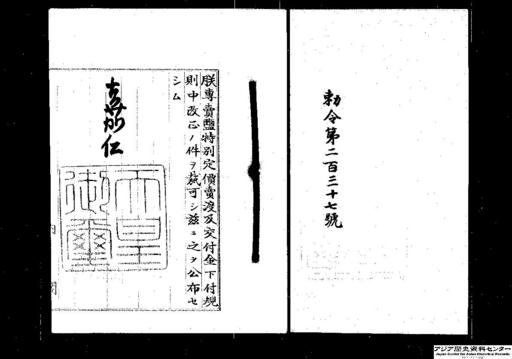 勅令第二百三十七號
朕專賣鹽特別定價賣渡及交付金下付規
則中改正ノ件ヲ裁可シ茲ニ之ヲ公布セ
シム
嘉仁
天皇
御璽
内閣
アジア歴史資料センター
Japan Center for Asian Historical Records